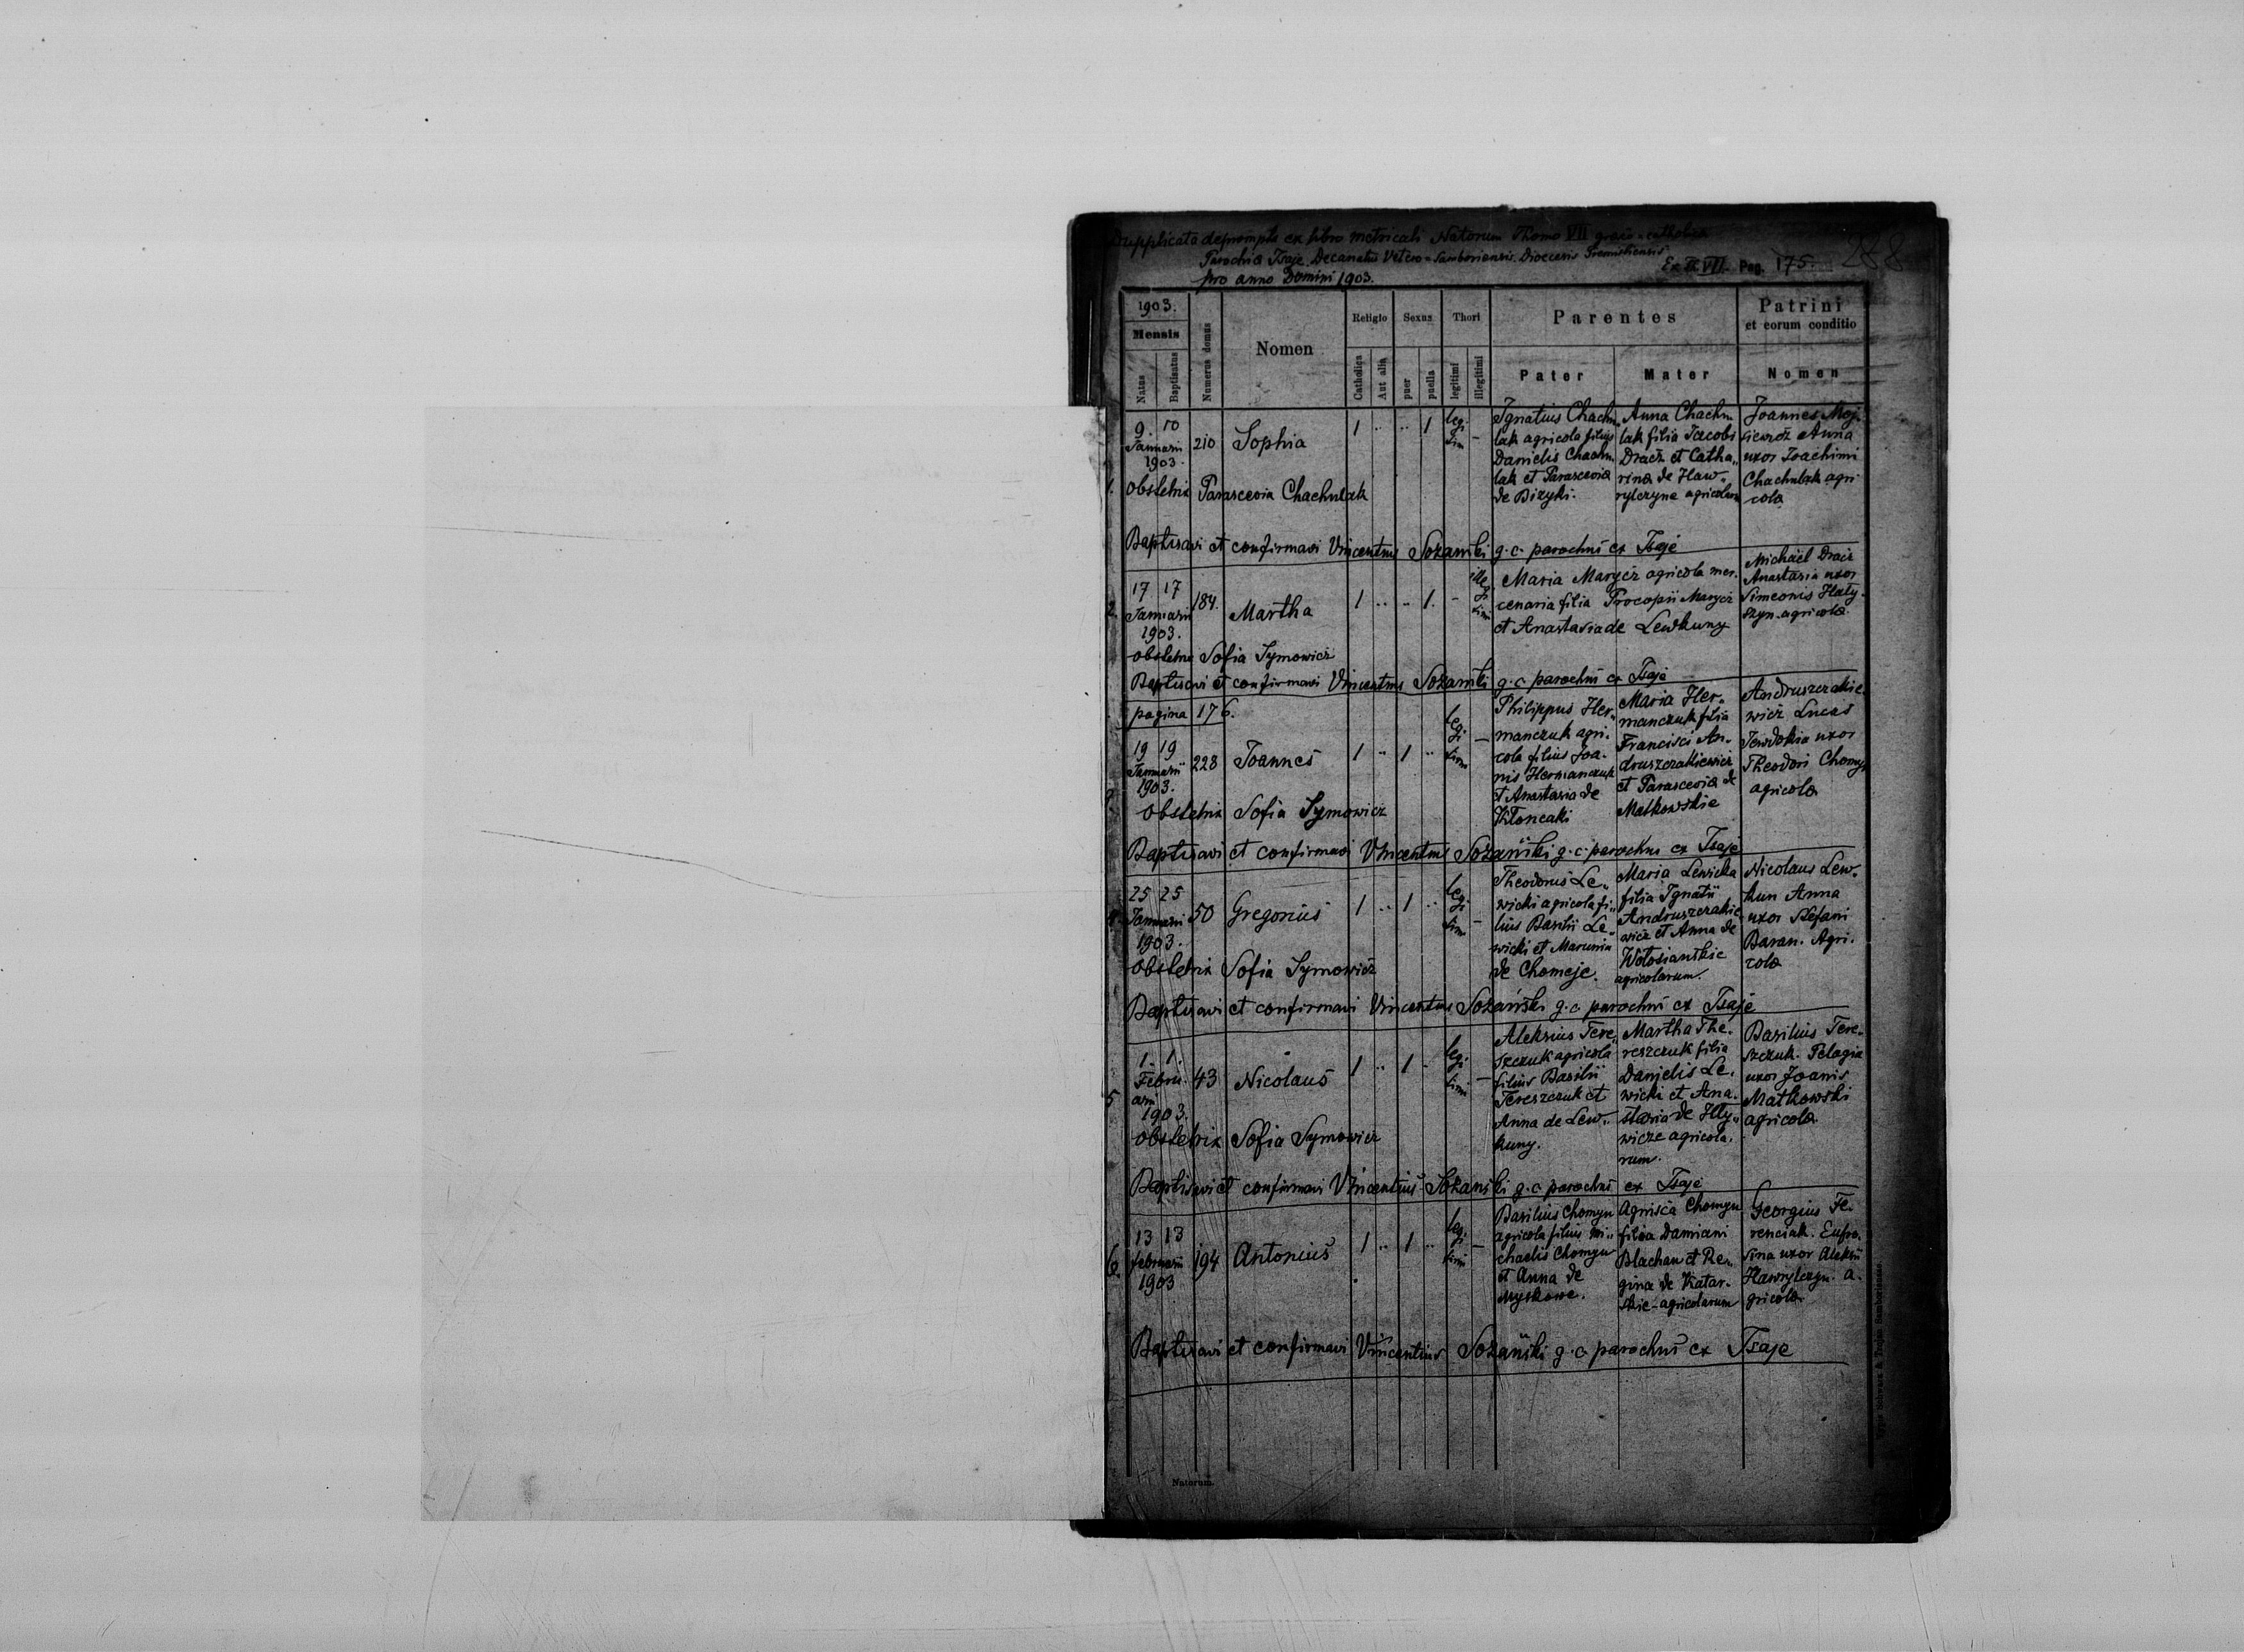 Dupplicata deprompta ex libro metricali Natorum Thomo VII graeco-catholica
Parochia Isaje. Decanatus Vetero-Samboriensis. Dioecesis Premisliensis
pro anno Domini 1903.
Ex VII. Pag. 175.
288
1903.
Mensis
Natus
Baptisatus
Numerus domus
Nomen
Religio
Catholica
Aut alia
Sexus
puer
puella
Thori
legitimi
illegitimi
Parentes
Pater
Mater
Patrini
et eorum conditio
Nomen
1.
9. 10
Januarii
1903.
210
Sophia
1 .. .. 1 legi tim –
Ignatius Chach„
lak agricola filius
Danielis Chachu
lak et Parascevia
de Bizyki.
Anna Chachu
lak filia Jacobi
Dracz et Catha„
rina de Haw„
rylczyna agricolarum
Joannes
Anna
uxor Joachimi
Chachulak agri
cola
obstetrix Parascevia Chachulak
Baptisavi et confirmavi Vincentius Sozański g.c. parochus ex Isaje
2.
17 17
Januarii
1903.
184.
Martha
1 .. .. 1. – ille gi tim
Maria Marycz agricola mer.
cenaria filia Procopii Marycz
et Anastasia de Lewkuny
Michael Dracz
Anastasia uxor
Simeonis Hały.
szyn. agricola.
obstetrix Sofia Symowicz
Baptisavi et confirmavi Vincentius Sozański g.c. parochus ex Isaje
pagina 176.
19 19
Januarii
1903.
228
Joannes
1 .. 1 .. legi tim –
Philippus Her„
manczuk agri.
cola filius Joa.
nis Hermanczuk
et Anastasia de
Kłoncaki
Maria Her„
manczuk filia
Francisci An„
druszczakiewicz
et Parascevia de
Matkowskie
Andruszczakie.
wicz Lucas
Tewdokia uxor
Theodori Chomyn
agricola
obstetrix Sofia Symowicz
Baptisavi et confirmavi Vincentius Sozański g.c. parochus ex Isaje
4.
25 25
Januarii
1903.
50
Gregorius
1 .. 1 .. legi tim –
Theodorus Le„
wicki agricola fi„
lius Basilii Le„
wicki et Marunia
de Chomeje.
Maria Lewicka
filia Ignatii
Andruszczakie
wicz et Anna de
Wołosiańskie
agricolarum.
Nicolaus Lew.
kun Anna
uxor Stefani
Baran. Agri.
cola
obstetrix Sofia Symowicz
Baptisavi et confirmavi Vincentius Sozański g.c. parochus ex Isaje
5
1. 1.
Febru.
arii
1903.
43
Nicolaus
1 .. 1 .. legi tim –
Aleksius Tere„
szczuk agricola
filius Basilii
Tereszczuk et
Anna de Lew„
kuny.
Martha The.
reszczuk filia
Danielis Le.
wicki et Ana.
stasia de Hły„
wicze agricola.
rum.
Basilius Tere.
szczuk. Pelagia
uxor Joanis
Matkowski
agricola.
obstetrix Sofia Symowicz
Baptisavi et confirmavi Vincentius Sozański g.c. parochus ex Isaje
6.
13 13
februarii
1903
194
Antonius
1 .. 1 .. legi timi –
Basilius Chomyn
agricola filius Mi„
chaelis Chomyn
et Anna de
Myskowe.
Agrisca Chomyn
filia Damiani
Blachan et Re„
gina de Katar.
skie – agricolarum
Georgius Fe.
renciak. Eufro.
sina uxor Aleksii
Hawrylczyn. a.
gricola
Baptisavi et confirmavi Vincentius Sozański g.c. parochus ex Isaje
Natorum.